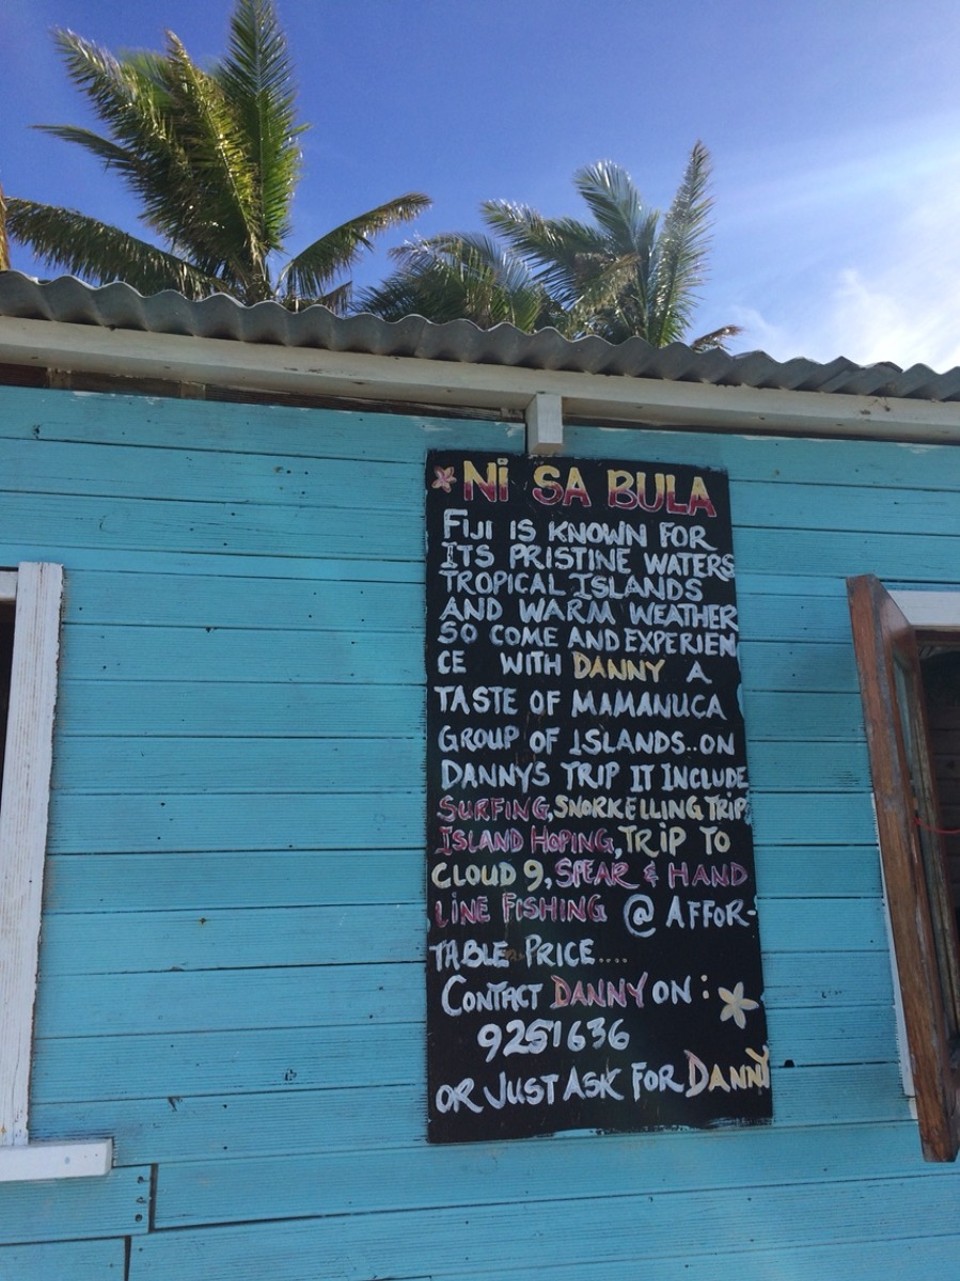 Ni SA BULA
FIJI IS KNOWN FOR
ITS PRISTINE WATERS
TROPICAL ISLANDS
AND WARM WEATHER
SO COME AND EXPERIEN
CE WITH DANNY A
TASTE OF MAMANUCA
GROUP OF ISLANDS..ON
DANNYS TRIP IT INCLUDE
SURFING,SNORKELLING TRIP,
ISLAND HOPING,TRiP TO
CLOUD 9, SPEAR & HAND
LiNE FISHING @ AFFOR-
TABLE PRICE....
CONTACT DANNY ON :
9251636
OR JUST ASK FOR DANNY